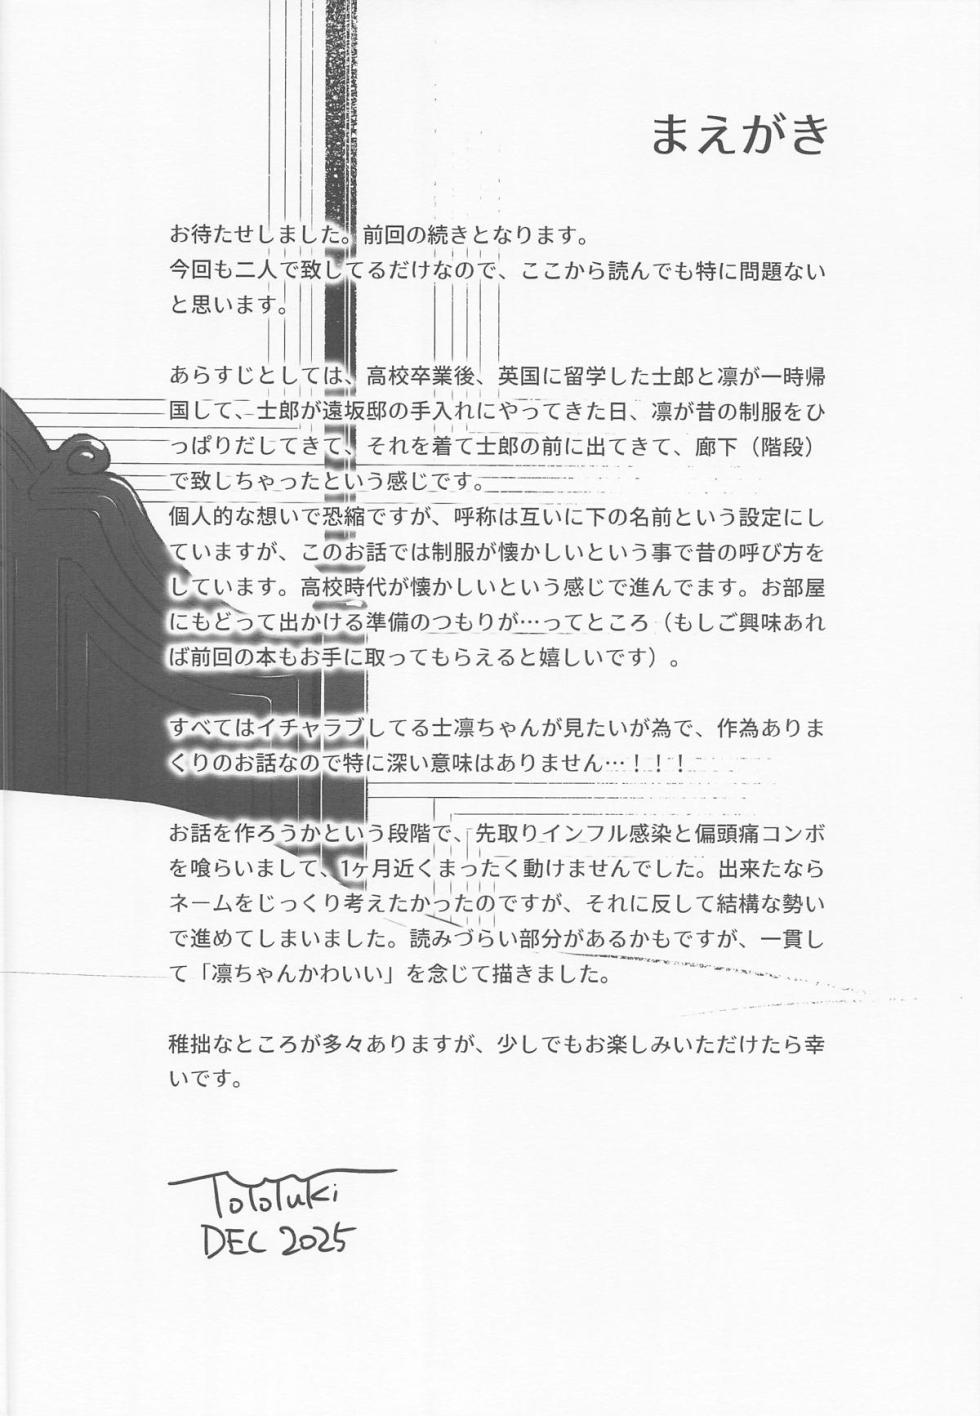 まえがき
お待たせしました。前回の続きとなります。
今回も二人で致してるだけなので、ここから読んでも特に問題ない
と思います。
あらすじとしては、高校卒業後、英国に留学した士郎と凛が一時帰
国して、士郎が遠坂邸の手入れにやってきた日、凛が昔の制服をひ
っぱりだしてきて、それを着て士郎の前に出てきて、廊下（階段）
で致しちゃったという感じです。
個人的な想いで恐縮ですが、呼称は互いに下の名前という設定にし
ていますが、このお話では制服が懐かしいという事で昔の呼び方を
しています。高校時代が懐かしいという感じで進んでます。お部屋
にもどって出かける準備のつもりが…ってところ（もしご興味あれ
ば前回の本もお手に取ってもらえると嬉しいです）。
すべてはイチャラブしてる士凛ちゃんが見たいが為で、作為ありま
くりのお話なので特に深い意味はありません…！！！
お話を作ろうかという段階で、先取りインフル感染と偏頭痛コンボ
を喰らいまして、1ヶ月近くまったく動けませんでした。出来たなら
ネームをじっくり考えたかったのですが、それに反して結構な勢い
で進めてしまいました。読みづらい部分があるかもですが、一貫し
て「凛ちゃんかわいい」を念じて描きました。
稚拙なところが多々ありますが、少しでもお楽しみいただけたら幸
いです。
ToToTuKi
DEC 2025